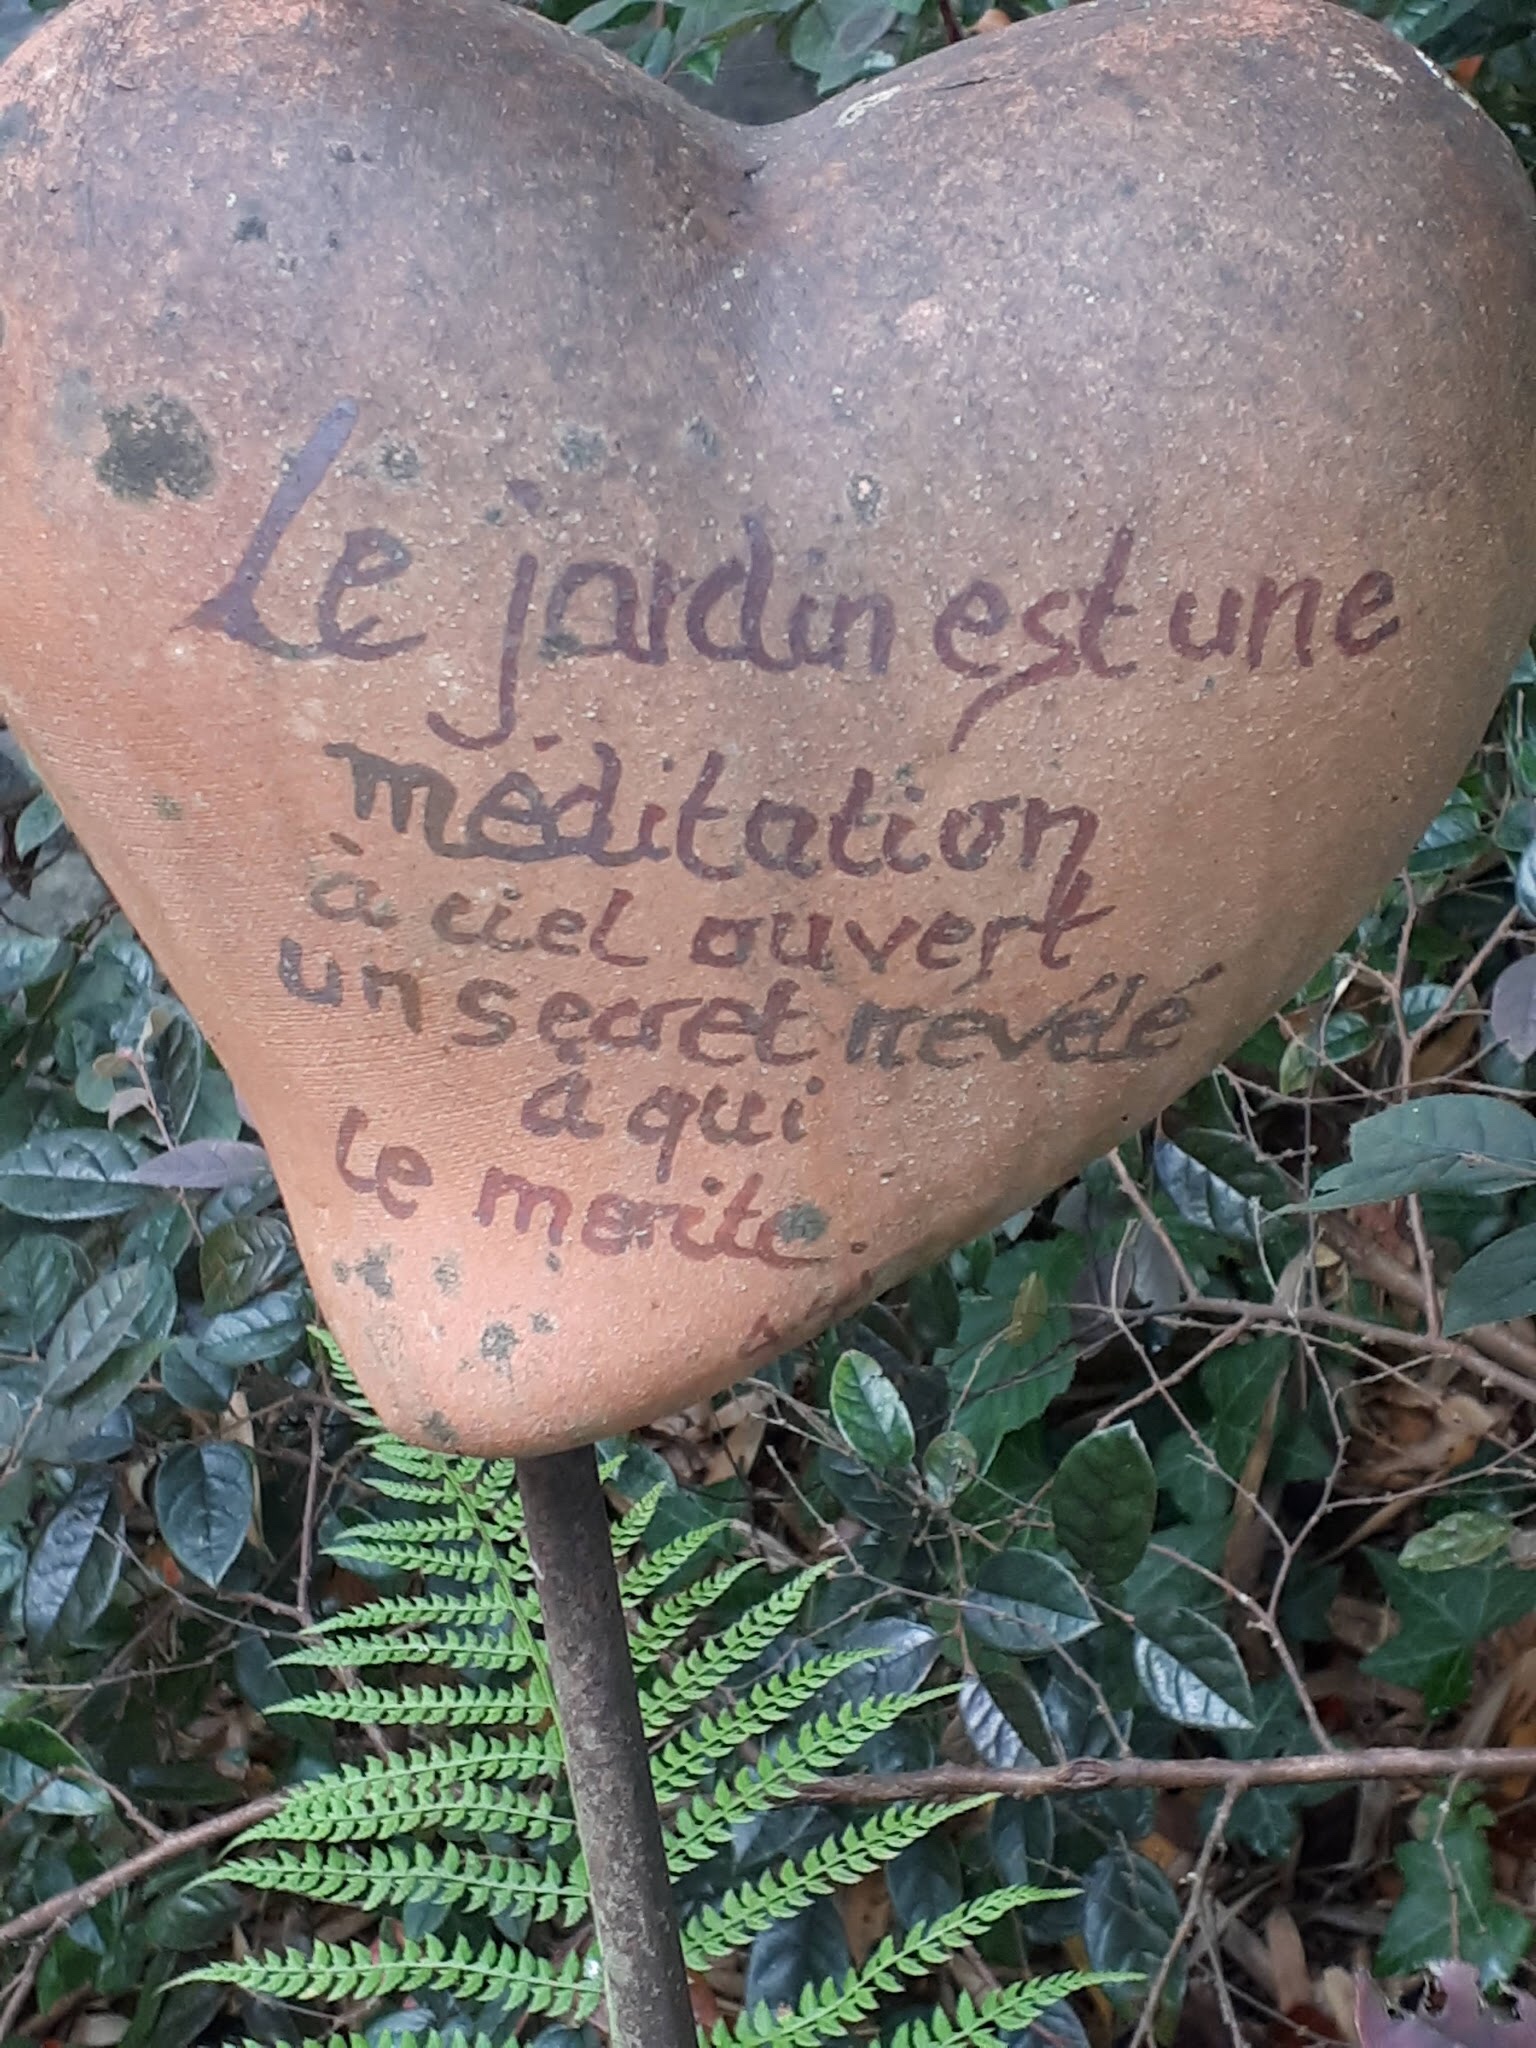 Le jardin est une
méditation
à ciel ouvert
un secret révélé
a qui
le mérite.